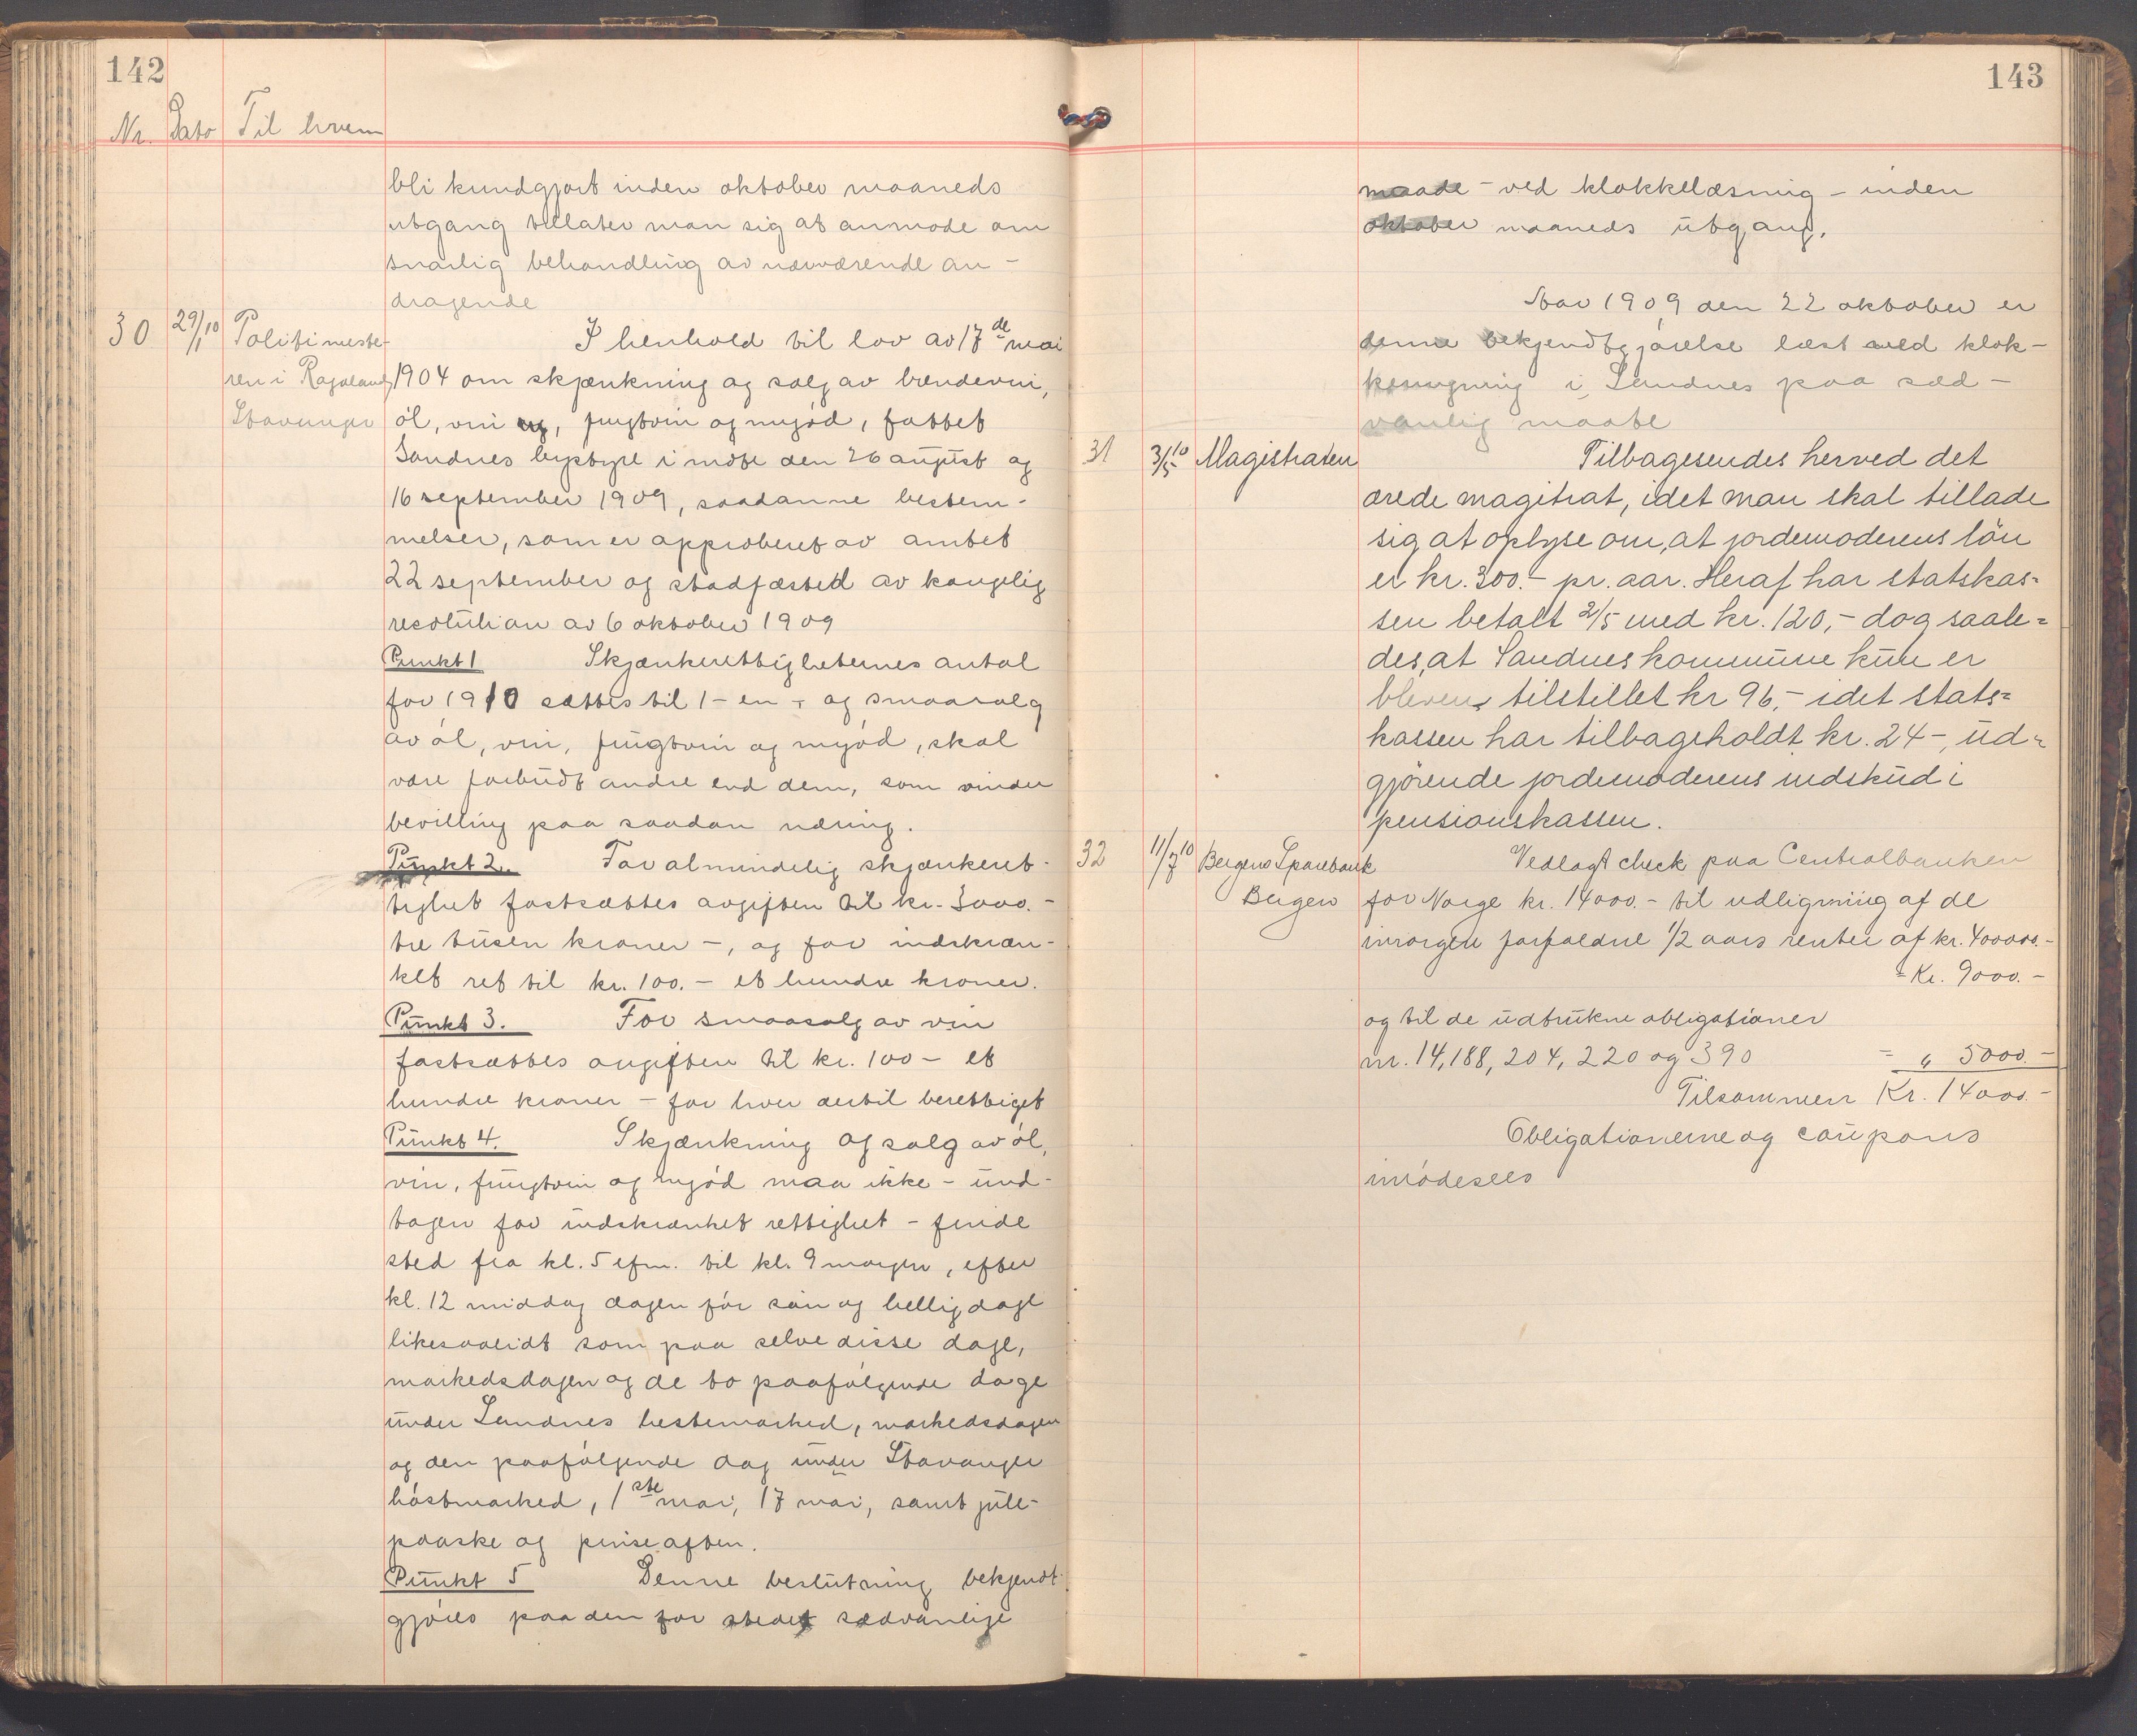 142
Nr. Dato Til hvem
bli kundgjort inden oktober maaneds
utgang tillater man sig at anmode om
snarlig behandling av nærværende an-
dragende
30 29/1 10 Politimeste-
ren i Rogaland
Stavanger
I henhold til lov av 17de mai
1904 om skjænkning og salg av brændevin,
øl, vin og, frugtvin og mjød, fattet
Sandnes bystyre i møte den 26 august og
16 september 1909, saadanne bestem-
melser, som er approberet av amtet
22 september og stadfæsted av kongelig
resolution av 6 oktober 1909
Punkt 1 Skjænkerettigheternes antal
for 1910 sættes til 1 - en - og smaasalg
av øl, vin, frugtvin og mjød, skal
være forbudt andre end dem, som vinder
bevilling paa saadan næring.
Punkt 2. For almindelig skjænkeret-
tighet fastsættes avgiften til kr. 3000.-
tre tusen kroner -, og for indskræn-
ket ret til kr. 100.- et hundre kroner.
Punkt 3. For smaasalg av vin
fastsættes avgiften til kr. 100 - et
hundre kroner - for hver dertil berettiget
Punkt 4. Skjænkning og salg av øl,
vin, frugtvin og mjød maa ikke - und-
tagen for indskrænket rettighet - finde
sted fra kl. 5 efm. til kl. 9 morgen, efter
kl. 12 middag dagen før søn og hellig dage
likesaalidt som paa selve disse dage,
markedsdagen og de to paafølgende dage
under Sandnes hestemarked, markedsdagen
og den paafølgende dag under Stavanger
høstmarked, 1ste mai, 17 mai, samt jule-
paaske og pinseaften.
Punkt 5 Denne beslutning bekjendt-
gjøres paa den for stedet sædvanlige
143
maade - ved klokkelæsning - inden
oktober maaneds utgang.
Aar 1909 den 22 oktober er
denne bekjendtgjørelse læst ved klok-
keringning i Sandnes paa sæd-
vanlig maate
31 3/5 10 Magistraten
Tilbagesendes herved det
ærede magitrat, idet man skal tillade
sig at oplyse om, at jordemoderens løn
er kr. 300.- pr. aar. Heraf har statskas-
sen betalt 2/5 med kr. 120,- dog saale-
des, at Sandnes kommune kun er
bleven tilstillet kr 96,- idet stats-
kassen har tilbageholdt kr. 24-, ud-
gjørende jordemoderens indskud i
pensionskassen.
32 11/7 10 Bergens Sparebank
Bergen
Vedlagt check paa Centralbanken
for Norge kr. 14000.- til udligning af de
imorgen forfaldne 1/2 aars renter af kr. 400000.-
= Kr. 9000.-
og til de udtrukne obligationer
nr. 14, 188, 204, 220 og 390 = " 5000.-
Tilsammen Kr. 14000.-
Obligationerne og coupons
imødesees